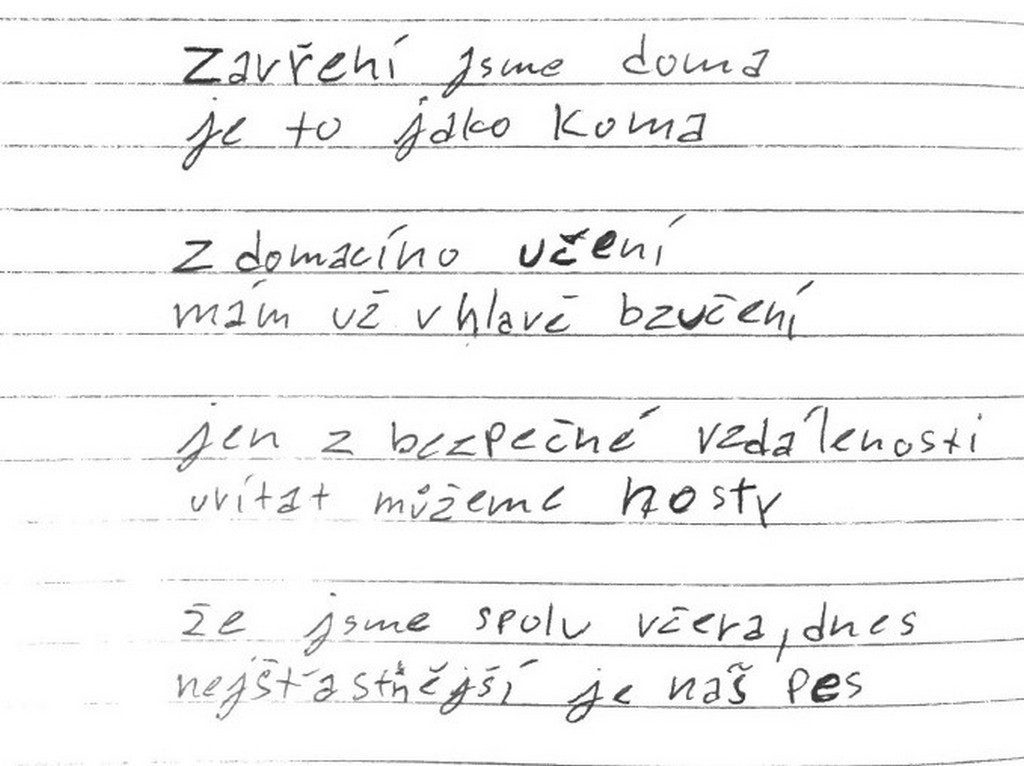 Zavření jsme doma
je to jako koma
z domacího učení
mám už v hlavě bzučení
jen z bezpečné vzdálenosti
uvítat můžeme hosty
že jsme spolu včera, dnes
nejšťastnější je naš pes